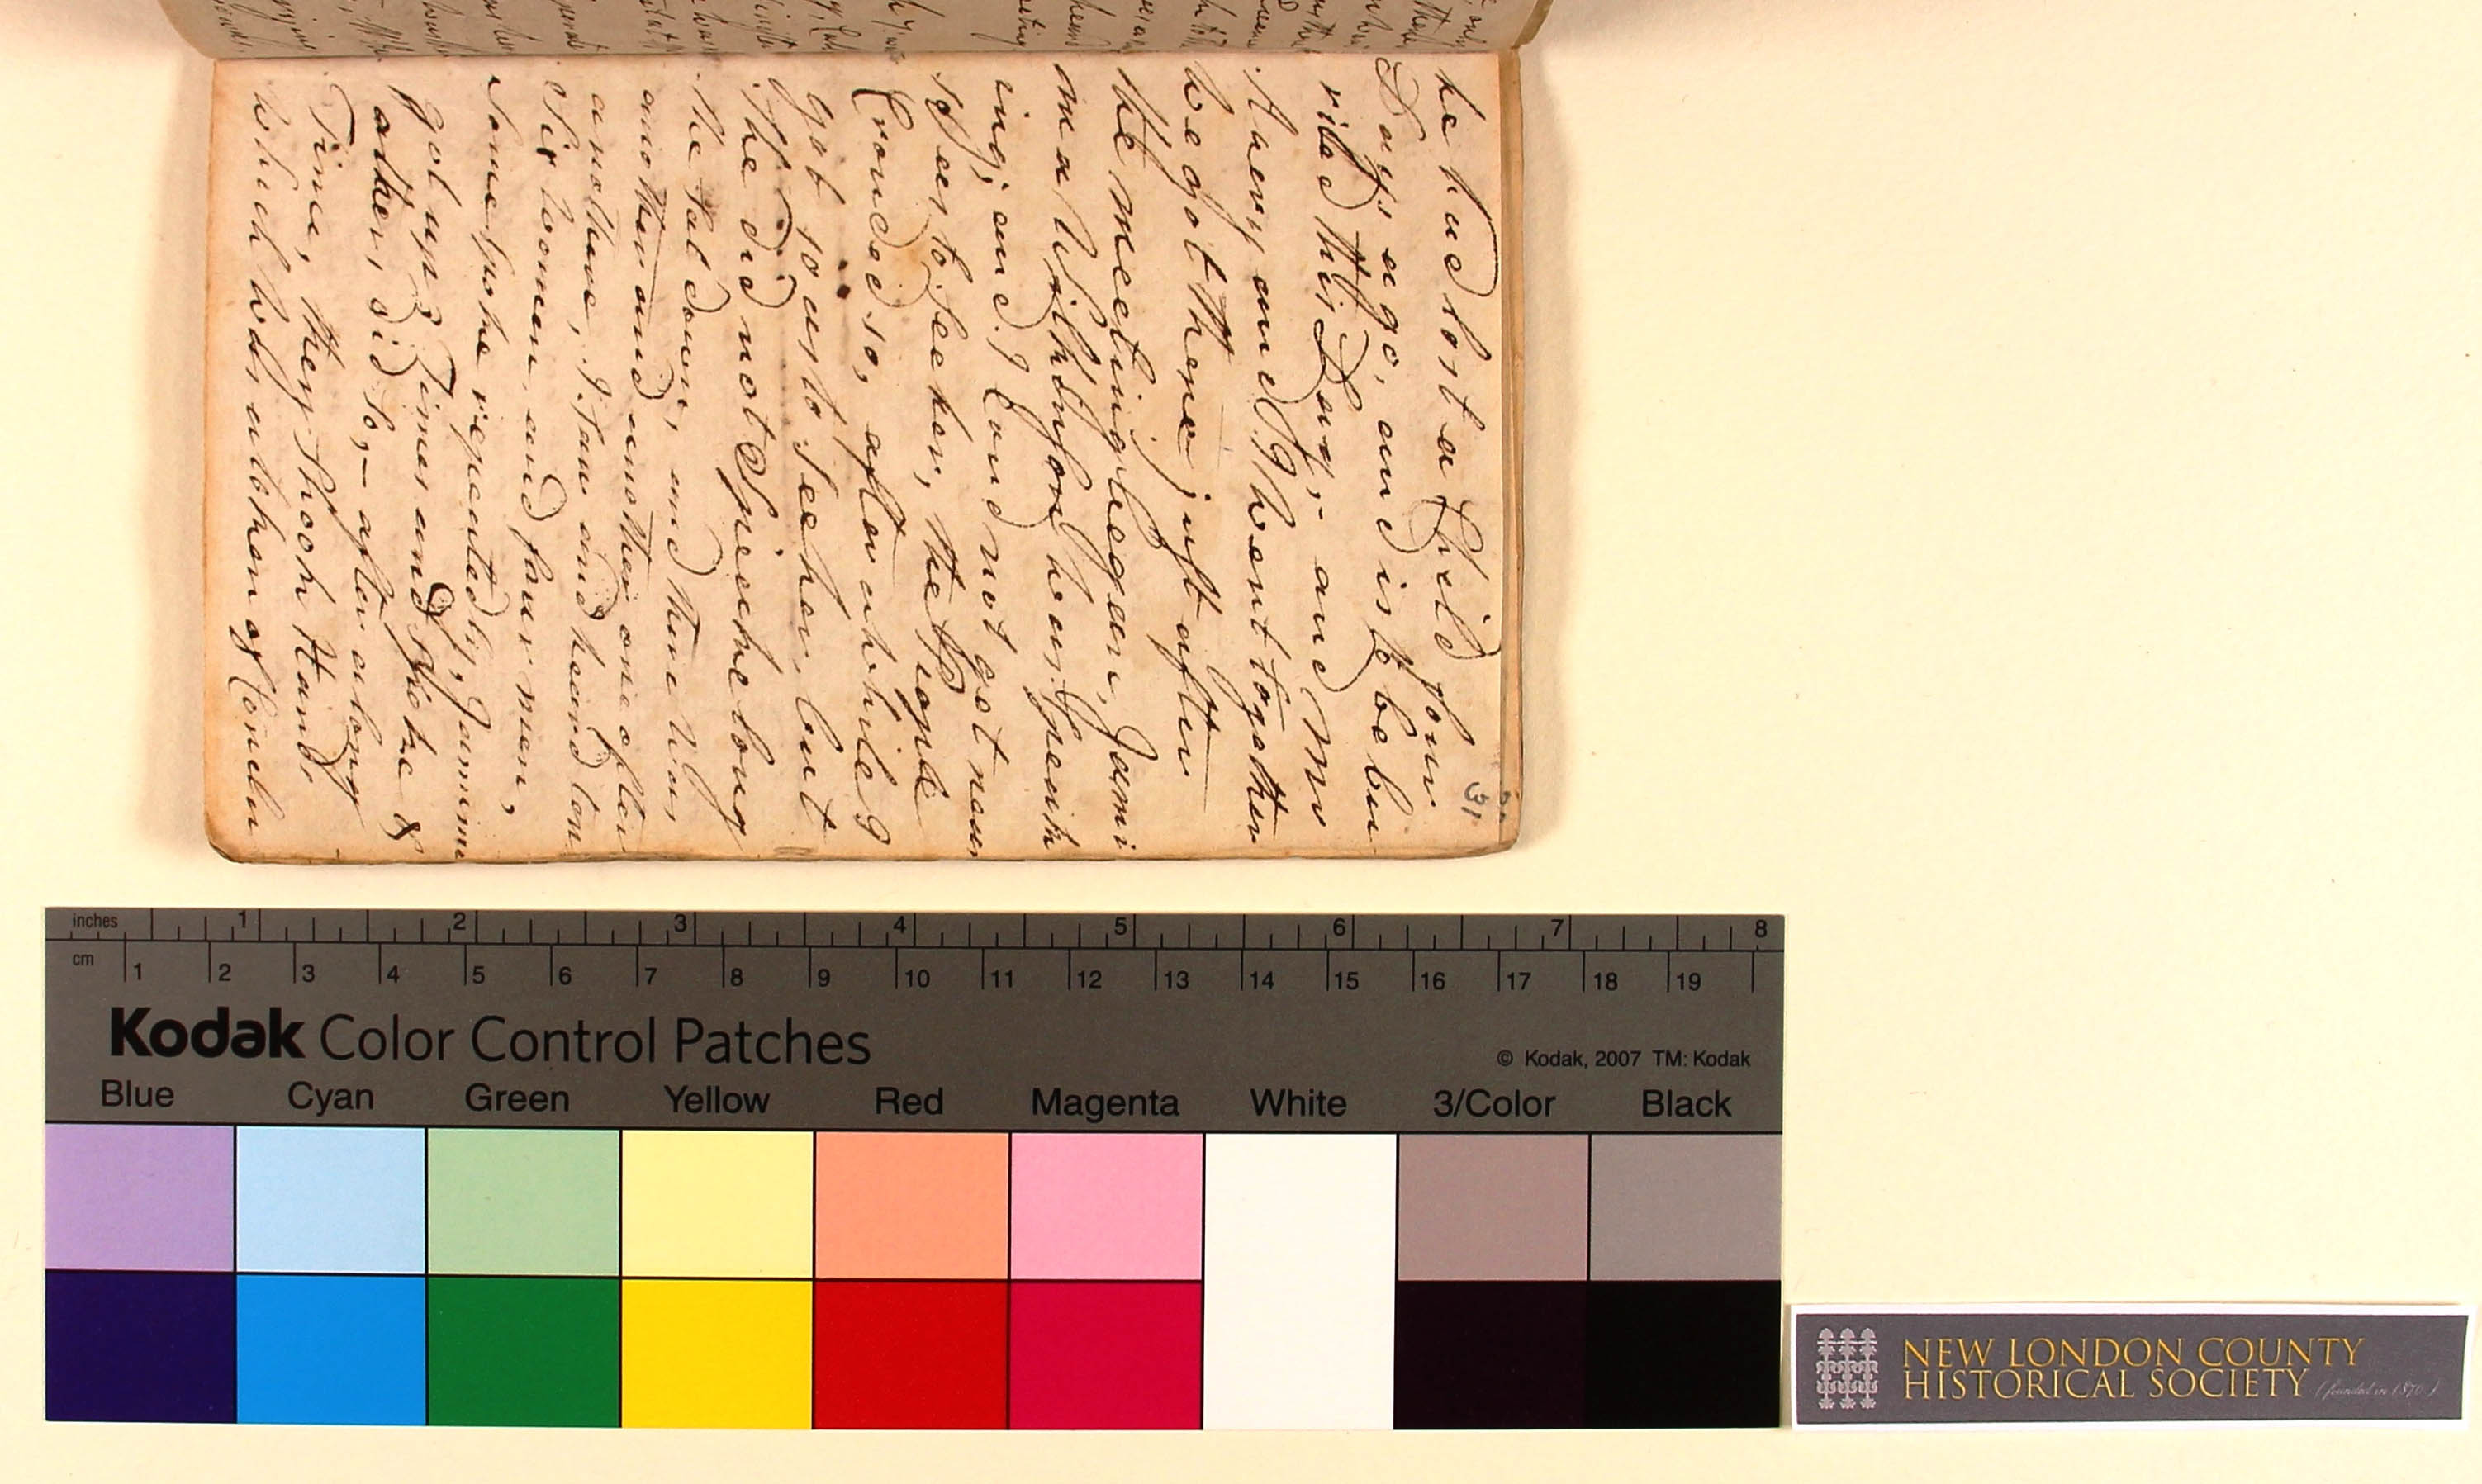 31
he had lost a Child four
Days ago, and is to be bu
ried this Day,- and Mr
Avery and I went togather
we got there just after
the meeting begun, Jami
ma Wilkinson was Speak
ing, and I Coud not get near
so as to see her, the People
Crouded so, after a while I
got so as to See her, but
She did not Speeke long
She Sat down, and there was
another and another one after
another, I saw and heard
Six women and four men,
Some Spoke repeatedly, Jamima
got up 3 Times and Spoke &
others did so,- after a long
Time, they Shook Hands
which was a token of Conclu
inches 1 2 3 4 5 6 7 8
cm 1 2 3 4 5 6 7 8 9 10 11 12 13 14 15 16 17 18 19
Kodak Color Control Patches
© Kodak, 2007 TM: Kodak
Blue Cyan Green Yellow Red Magenta White 3/Color Black
NEW LONDON COUNTY
HISTORICAL SOCIETY (founded in 1870)